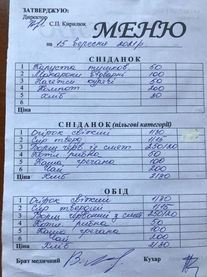 ЗАТВЕРДЖУЮ:
Директор С.П. Кирилюк
МЕНЮ
на 15 вересня 2021р.
СНІДАНОК
1 Капуста тушков 50
2 Макарони відварні 100
3 Нагетси курячі 50
4 Компот 200
5 Хліб 30
6
Ціна
СНІДАНОК (пільгові категорії)
1 Огірок свіжий
2 Сир твердий
3 Борщ черв із смет 250/20
4 Котл рибна 50
5 Каша гречана 100
6 Чай 200
Ціна Хліб
ОБІД
1 Огірок свіжий
2 Сир твердий
3 Борщ червоний з смет 250/20
4 Котл рибна 50
5 Каша гречана 100
6 Чай 200
Ціна Хліб
Брат медичний Кухар